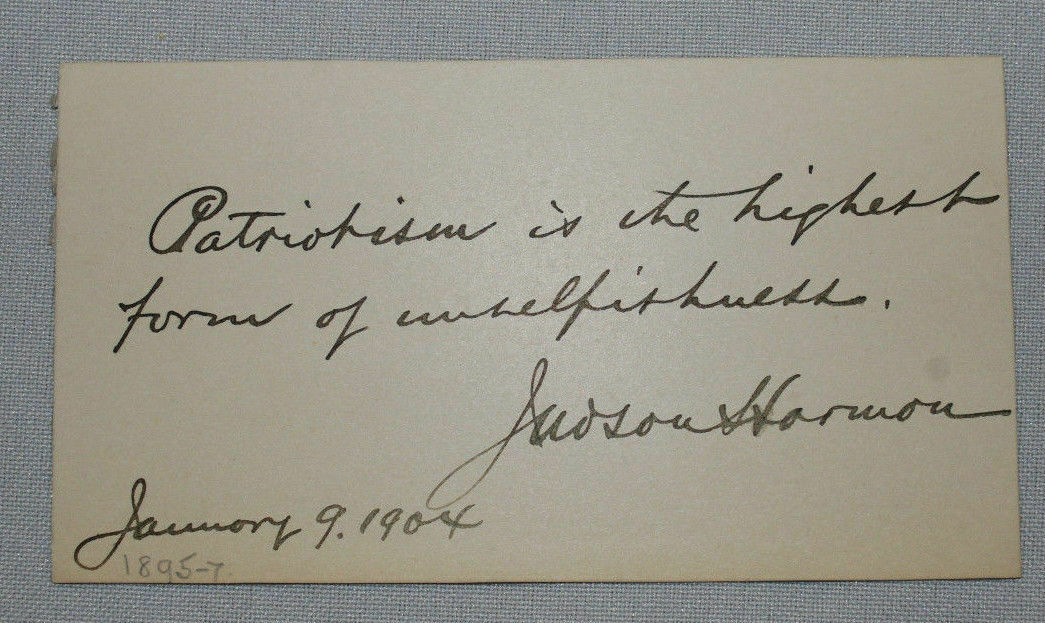 Patriotism is the highest
form of unselfishness.
Judson Harmon
January 9. 1904
1895-7